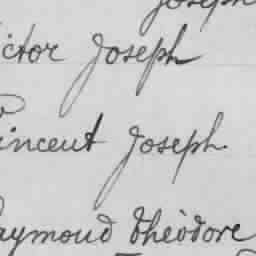 Joseph
ictor Joseph
Vincent Joseph.
Raymond Théodore